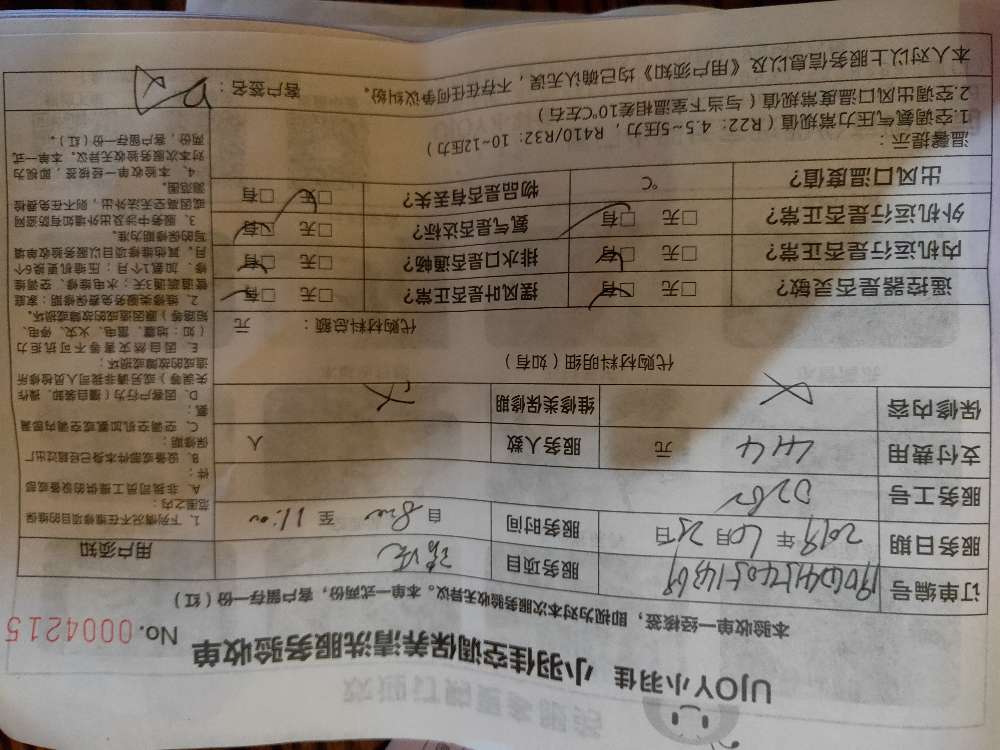 UJOY小羽佳 小羽佳空调保养清洗服务验收单
No. 0004215
本验收单一经核签，即视为对本次服务验收无异议。本单一式两份，客户留存一份（红）
订单编号
服务项目 清洗
用户须知
服务日期 2019年 月25日
服务时间 自8:00至11:00
服务工号
支付费用 444 元
服务人数 人
保修内容
维修类保修期
代购材料明细（如有）
代购材料总额： 元
遥控器是否灵敏？ □有 □无
摆风叶叶片是否正常？ □有 □无
内机运行是否正常？ □有 □无
排水口是否通畅？ □有 □无
外机运行是否正常？ □有 □无
氨气是否达标？ □有 □无
出风口温度值？ ℃
物品是否有丢失？ □有 □无
1、下列情况不在维修项目的维保
范围之内：
A、非我司员工提供的设备或部
件；
B、设备或部件本身已经超过出厂
保修期；
C、空调空机加氨或空调内部漏
氨；
D、因客户行为（擅自装卸、操作
失误等）或另请非我司人员检修所
造成的故障或损坏；
E、因自然灾害等不可抗拒力
（如：地震、雷电、火灾、停电、
短路等）原因造成的故障或损坏。
2、维修类服务免费保修期：家庭
管道疏通3天；水电维修、空调维
修、加氨1个月；压缩机更换6个
月。其他维修项目以服务验收单填
写的保修期为准。
3、服务中涉及出外墙如有防盗网
或因高空无法外出，则不在免费检
测范围。
4、本验收单一经核签，即视为
对本次服务验收无异议。本单一式
两份，客户留存一份（红）。
温馨提示：
1.空调氨气压力常规值（R22：4.5~5压力，R410/R32：10~12压力）
2.空调出风口温度常规值（与当下室温相差10℃左右）
本人对以上服务信息以及《用户须知》均已确认无误，不存在任何争议纠纷。 客户签名：